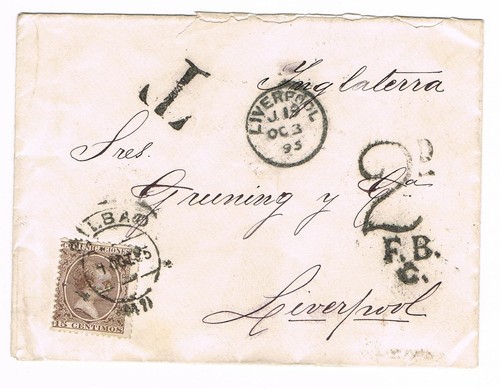 Inglaterra
T
LIVERPOOL
J 19
OC 3
95
Sres.
Gruning y Cia
2D
F.B.
C.
BILBAO
COMUNICACIONES
15 CENTIMOS
Liverpool